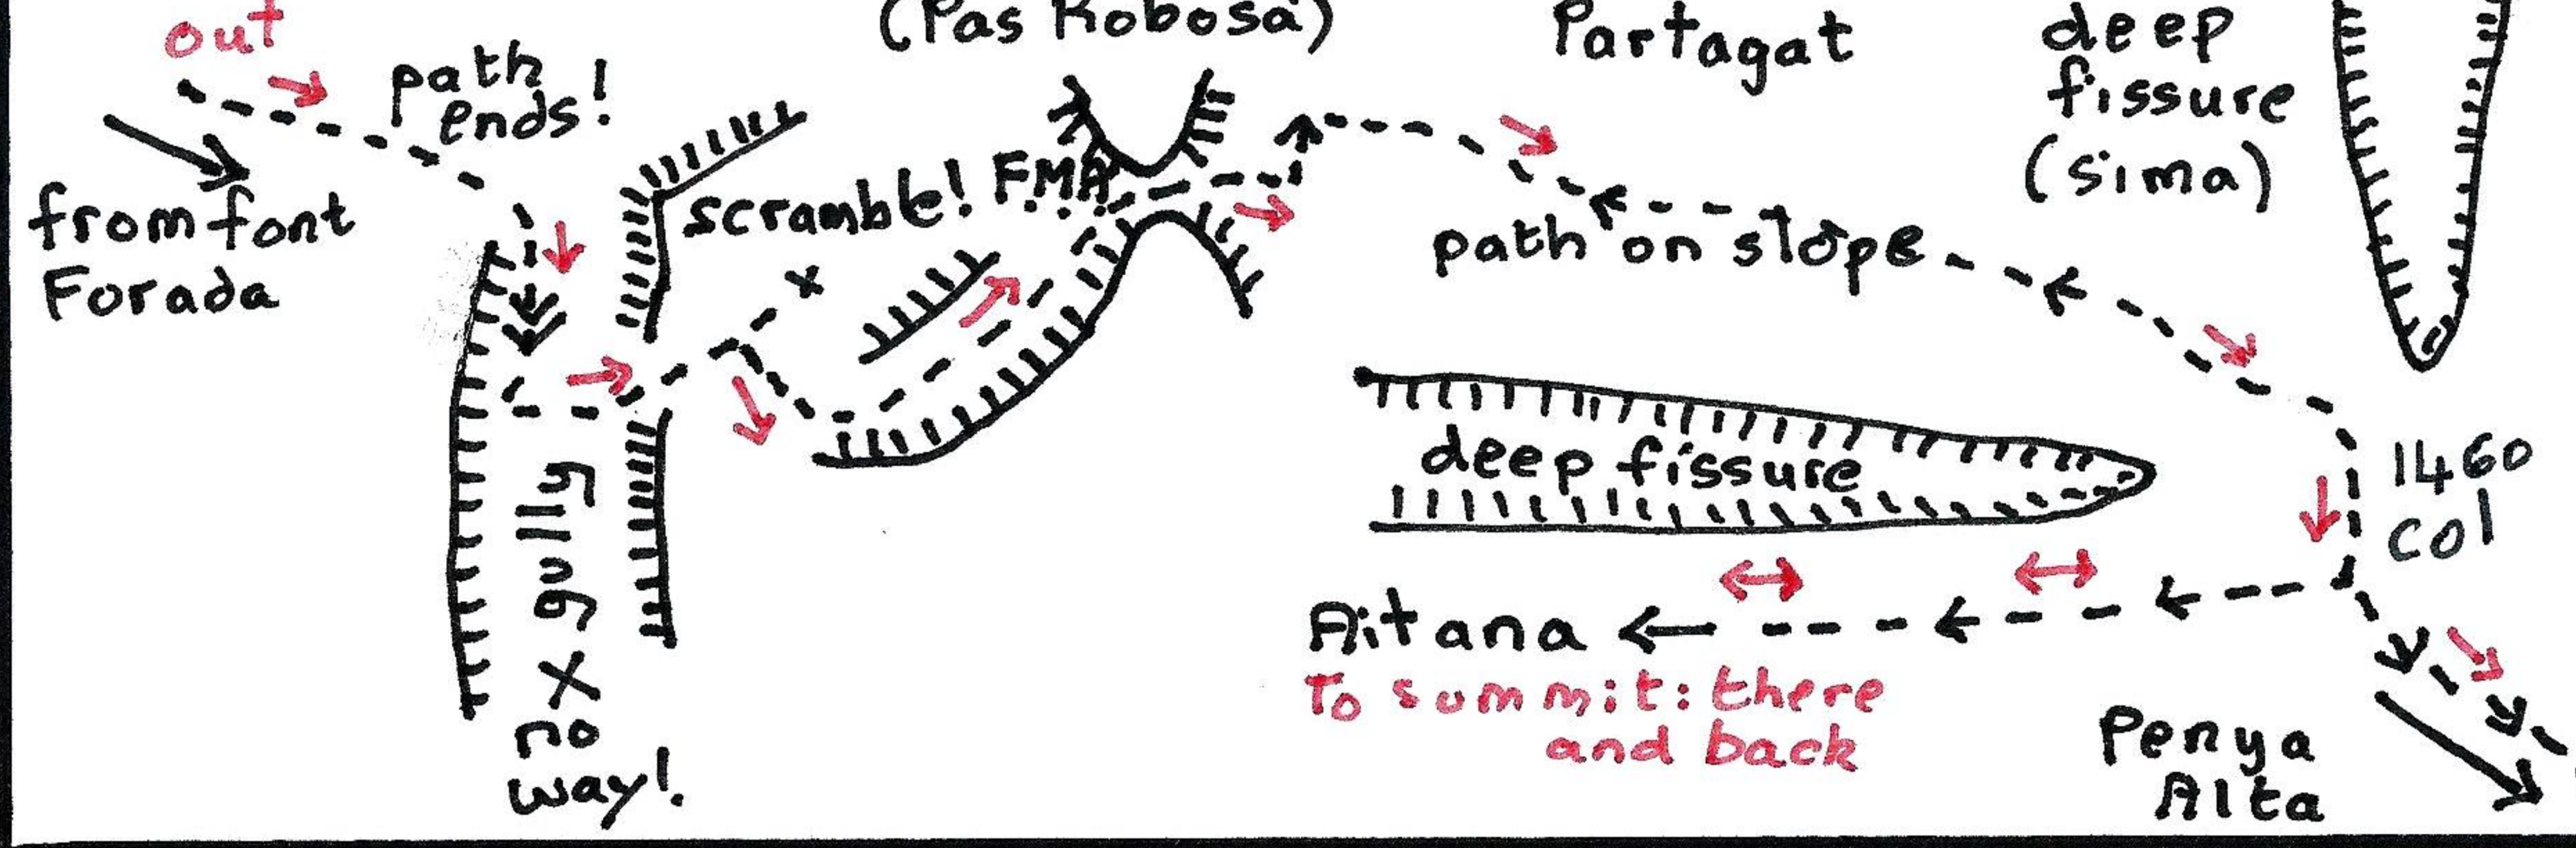 out
path
ends!
from font
Forada
(Pas Kobosa)
Partagat
deep
fissure
(sima)
scramble! F.M.A.
path on slope
deep fissure
1460
col
gully
X
no
way!
Aitana
To summit: there
and back
Penya
Alta